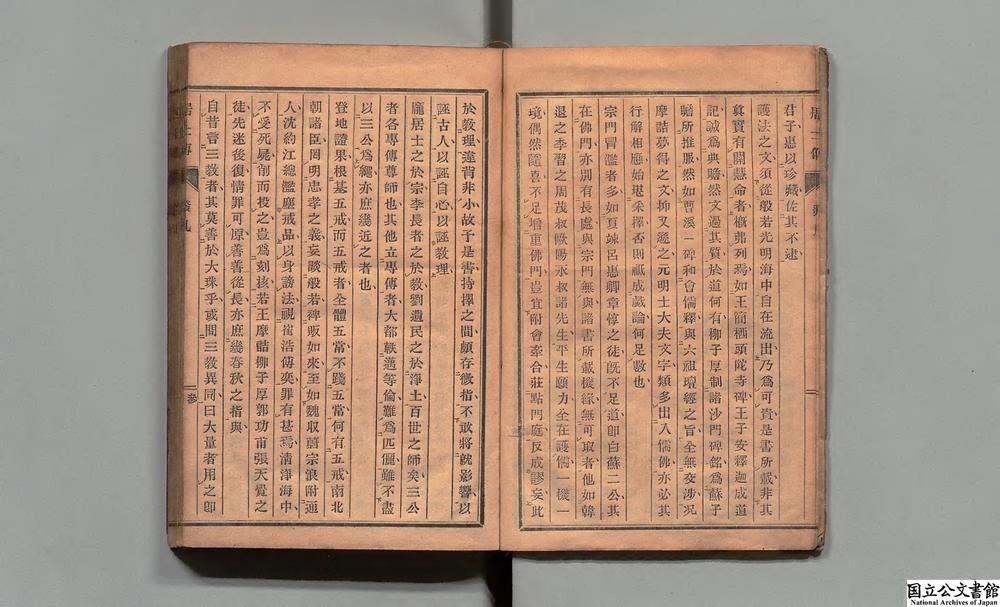 君子惠以珍藏佐其不逮
護法之文須從般若光明海中自在流出乃爲可貴是書所載非其
眞實有關慧命者槪弗列焉如王簡栖頭陀寺碑王子安釋迦成道
記誠爲典贍然文過其質於道何有柳子厚制諸沙門碑銘爲蘇子
瞻所推服然如曹溪一碑和會儒釋與六祖壇經之旨全無交涉况
摩詰夢得之文抑又遜之元明士大夫文字類多出入儒佛亦必其
行解相應始堪采擇否則祇成戲論何足數也
宗門冒濫者多如夏竦呂惠卿章惇之徒旣不足道卽白蘇二公其
在佛門亦別有長處與宗門無與諸書所載機緣無可取者他如韓
退之李習之周茂叔歐陽永叔諸先生平生願力全在護儒一機一
境偶然隨喜不足增重佛門豈宜附會牽合莊點門庭反成謬妄此
於敎理違背非小故于是書持擇之間頗存微指不敢將魷影響以
誣古人以誣自心以誣敎理
龐居士之於宗李長者之於敎劉遺民之於淨土百世之師矣三公
者各專傳尊師也其他立專傳者大都軼邁等倫難爲匹儷雖不盡
以三公爲繩亦庶幾近之者也
登地證果根基五戒而五戒者全體五常不踐五常何有五戒南北
朝諸臣罔明忠孝之義妄談般若稗販如來至如魏収蔚宗浪附通
人沈約江總濫塵戒品以身謗法視崔浩傅奕罪有甚焉淸淨海中
不受死屍削而投之豈爲刻核若王摩詰柳子厚郭功甫張天覺之
徒先迷後復情罪可原善善從長亦庶幾春秋之指與
自昔言三敎者其莫善於大珠乎或問三敎異同曰大量者用之卽
居士傳
發凡
叄
国立公文書館
National Archives of Japan